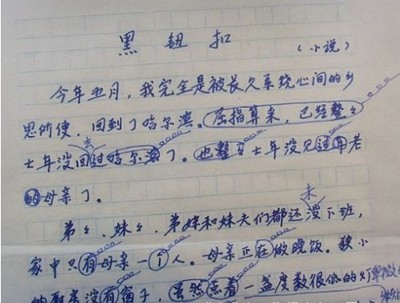 黑钮扣
(小说)
今年五月，我完全是被长久系绕心间的乡
思所使，回到了哈尔滨。屈指算来，已经整々
七年没回过哈尔滨了。也整々七年没见过年老
的母亲了。
弟々、妹々、弟妹和妹夫们都还没下班，
家中只有母亲一个人。母亲正在做晚饭。狭小
的厨房没有窗子，虽然点着一盏度数很低的灯